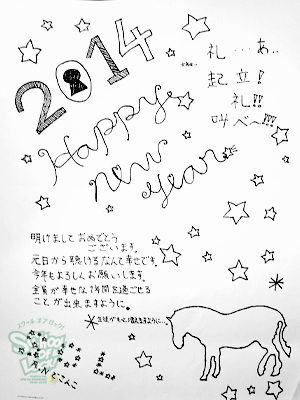 2014
Happy
new
year
礼…あ、
起立!
礼!!
叫べ〜!!!
明けましておめでとう
ございます。
元日から聴けるなんて幸せです。
今年もよろしくお願いします。
全員が幸せな1年間を過ごせる
ことが出来ますように。